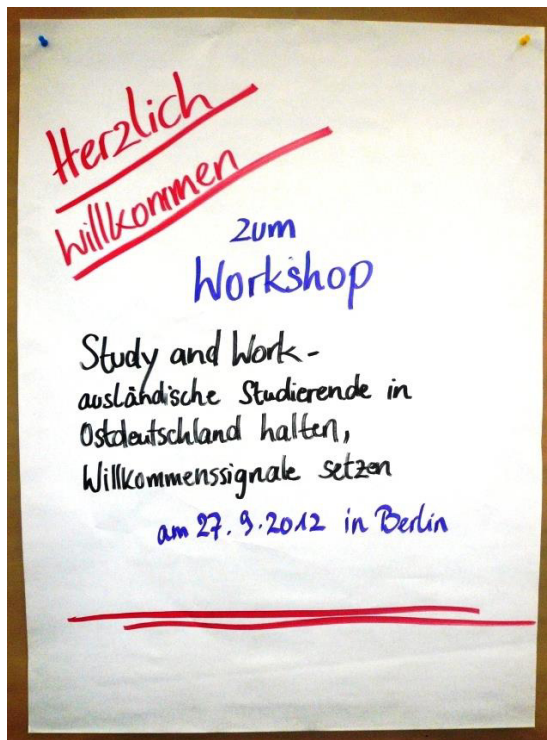 Herzlich
willkommen
zum
Workshop
Study and Work -
ausländische Studierende in
Ostdeutschland halten,
Willkommenssignale setzen
am 27.9.2012 in Berlin